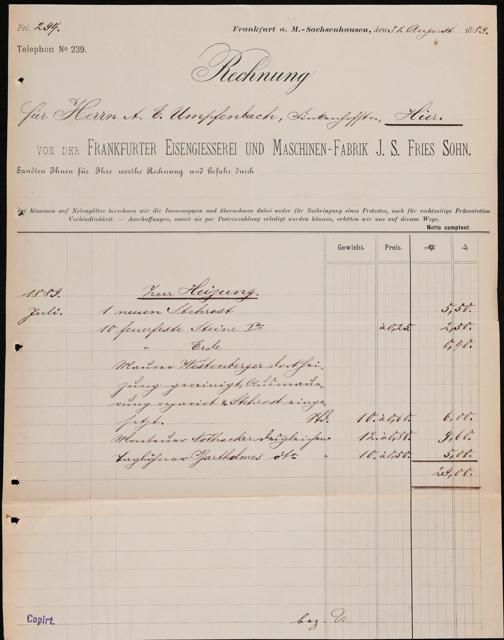 Fol. 294.
Frankfurt a. M.-Sachsenhausen, den 31. August 1889.
Telephon No 239.
Rechnung
für Herrn A. E. Umpfenbach, Hier.
VON DER FRANKFURTER EISENGIESSEREI UND MASCHINEN-FABRIK J. S. FRIES SOHN.
Sandten Ihnen für Ihre werthe Rechnung und Gefahr durch
Bei Rimessen auf Nebenplätze berechnen wir die Incassospesen und übernehmen dabei weder für Beibringung eines Protestes, noch für rechtzeitige Präsentation
Verbindlichkeit. — Anschaffungen, soweit sie per Posteinzahlung erledigt werden können, erbitten wir uns auf diesem Wege.
Netto comptant.
Gewicht. Preis. ℳ ₰
1889. Zur Heizung.
Juli. 1 neuen Stehrost 5,50.
10 feuerfeste Steine Ia à 0,25 2,50.
" Erde 0,40.
Maurer Westenberger dort Hei-
zung gereinigt, Ausmaue-
rung reparirt & Stehrost einge-
setzt. Std. 10. à 0,60. 6,00.
Monteur Rothacker desgleichen " 12. à 0,80. 9,60.
Taglöhner Bartholmes dto " 10. à 0,50. 5,00.
29,00.
Copirt.
bez.